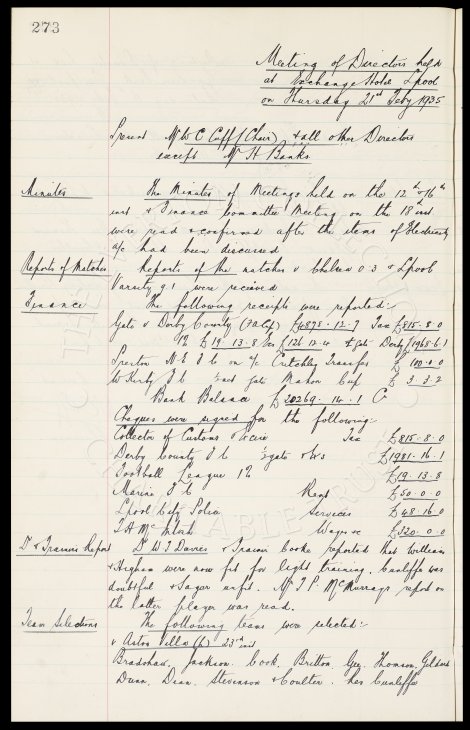 273
Meeting of Directors held
at Exchange Hotel L'pool
on Thursday 21st Feby 1935
Present Mr W C Cuff (Chair) & all other Directors
except Mr H Banks
Minutes The Minutes of Meetings held on the 12th & 16th
inst & Finance Committee Meeting on the 18th inst
were read & confirmed after the items of Electricity
a/c had been discussed
Reports of Matches Reports of the matches v Chelsea 0.3 & L'pool
Varsity 9.1 were received
Finance The following receipts were reported:-
Gate v Derby County (FA Cup) £4878.12.7 Tax £815.8.0
1% £19.13.8 £126.12.4 ½ gate Derby £1968.6.1
Preston N.E. F C on a/c Critchley Transfer £100.0.0
W Kirby F C gate Mahon Cup £3.3.2
Bank Balance £20269.14.1 Cr
Cheques were signed for the following:-
Collector of Customs & Excise Tax £815.8.0
Derby County F C ½ gate £1981.16.1
Football League 1% £19.13.8
Marine F C Rent £50.0.0
L'pool City Police Services £48.16.0
T H McIntosh Wages &c £320.0.0
Dr & Trainers Report Dr W J Davies & Trainer Cooke reported that Williams
& Higham were now fit for light training. Cunliffe was
doubtful & Sagar unfit. Mr T P McMurray's report on
the latter player was read.
Team Selections The following teams were selected:-
v Aston Villa (h) 23rd inst
Bradshaw. Jackson. Cook. Britton. Gee. Thomson. Geldard
Dunn. Dean. Stevenson & Coulter. Res Cunliffe